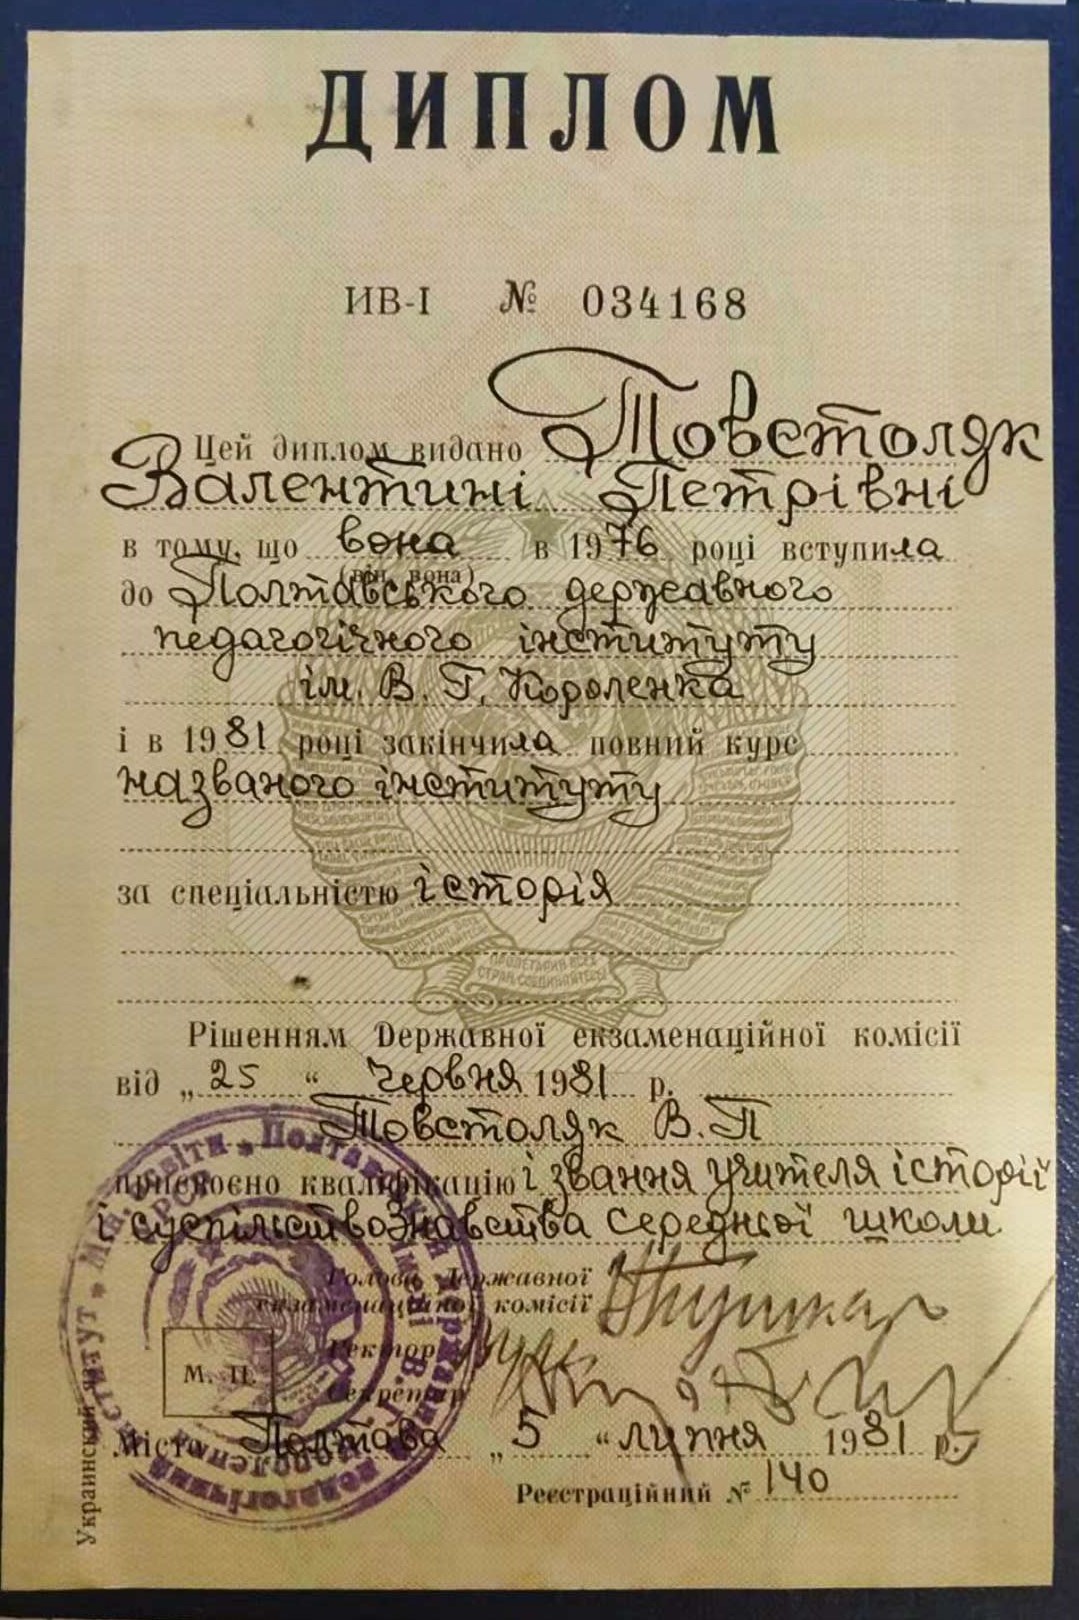 ДИПЛОМ
ИВ-I № 034168
Цей диплом видано Товстоляк
Валентині Петрівні
в тому, що вона в 1976 році вступила
(він, вона)
до Полтавського державного
педагогічного інституту
ім. В. Г. Короленка
і в 1981 році закінчила повний курс
названого інституту
за спеціальністю історія
ПРОЛЕТАРИИ ВСЕХ
СТРАН, СОЕДИНЯЙТЕСЬ!
Рішенням Державної екзаменаційної комісії
від „25“ червня 1981 р.
Товстоляк В.П
присвоєно кваліфікацію і звання учителя історії
і суспільствознавства середньої школи
Голова Державної
екзаменаційної комісії
Ректор
Секретар
М. П.
Місто Полтава „5“ липня 1981 р.
Реєстраційний № 140
Украинский